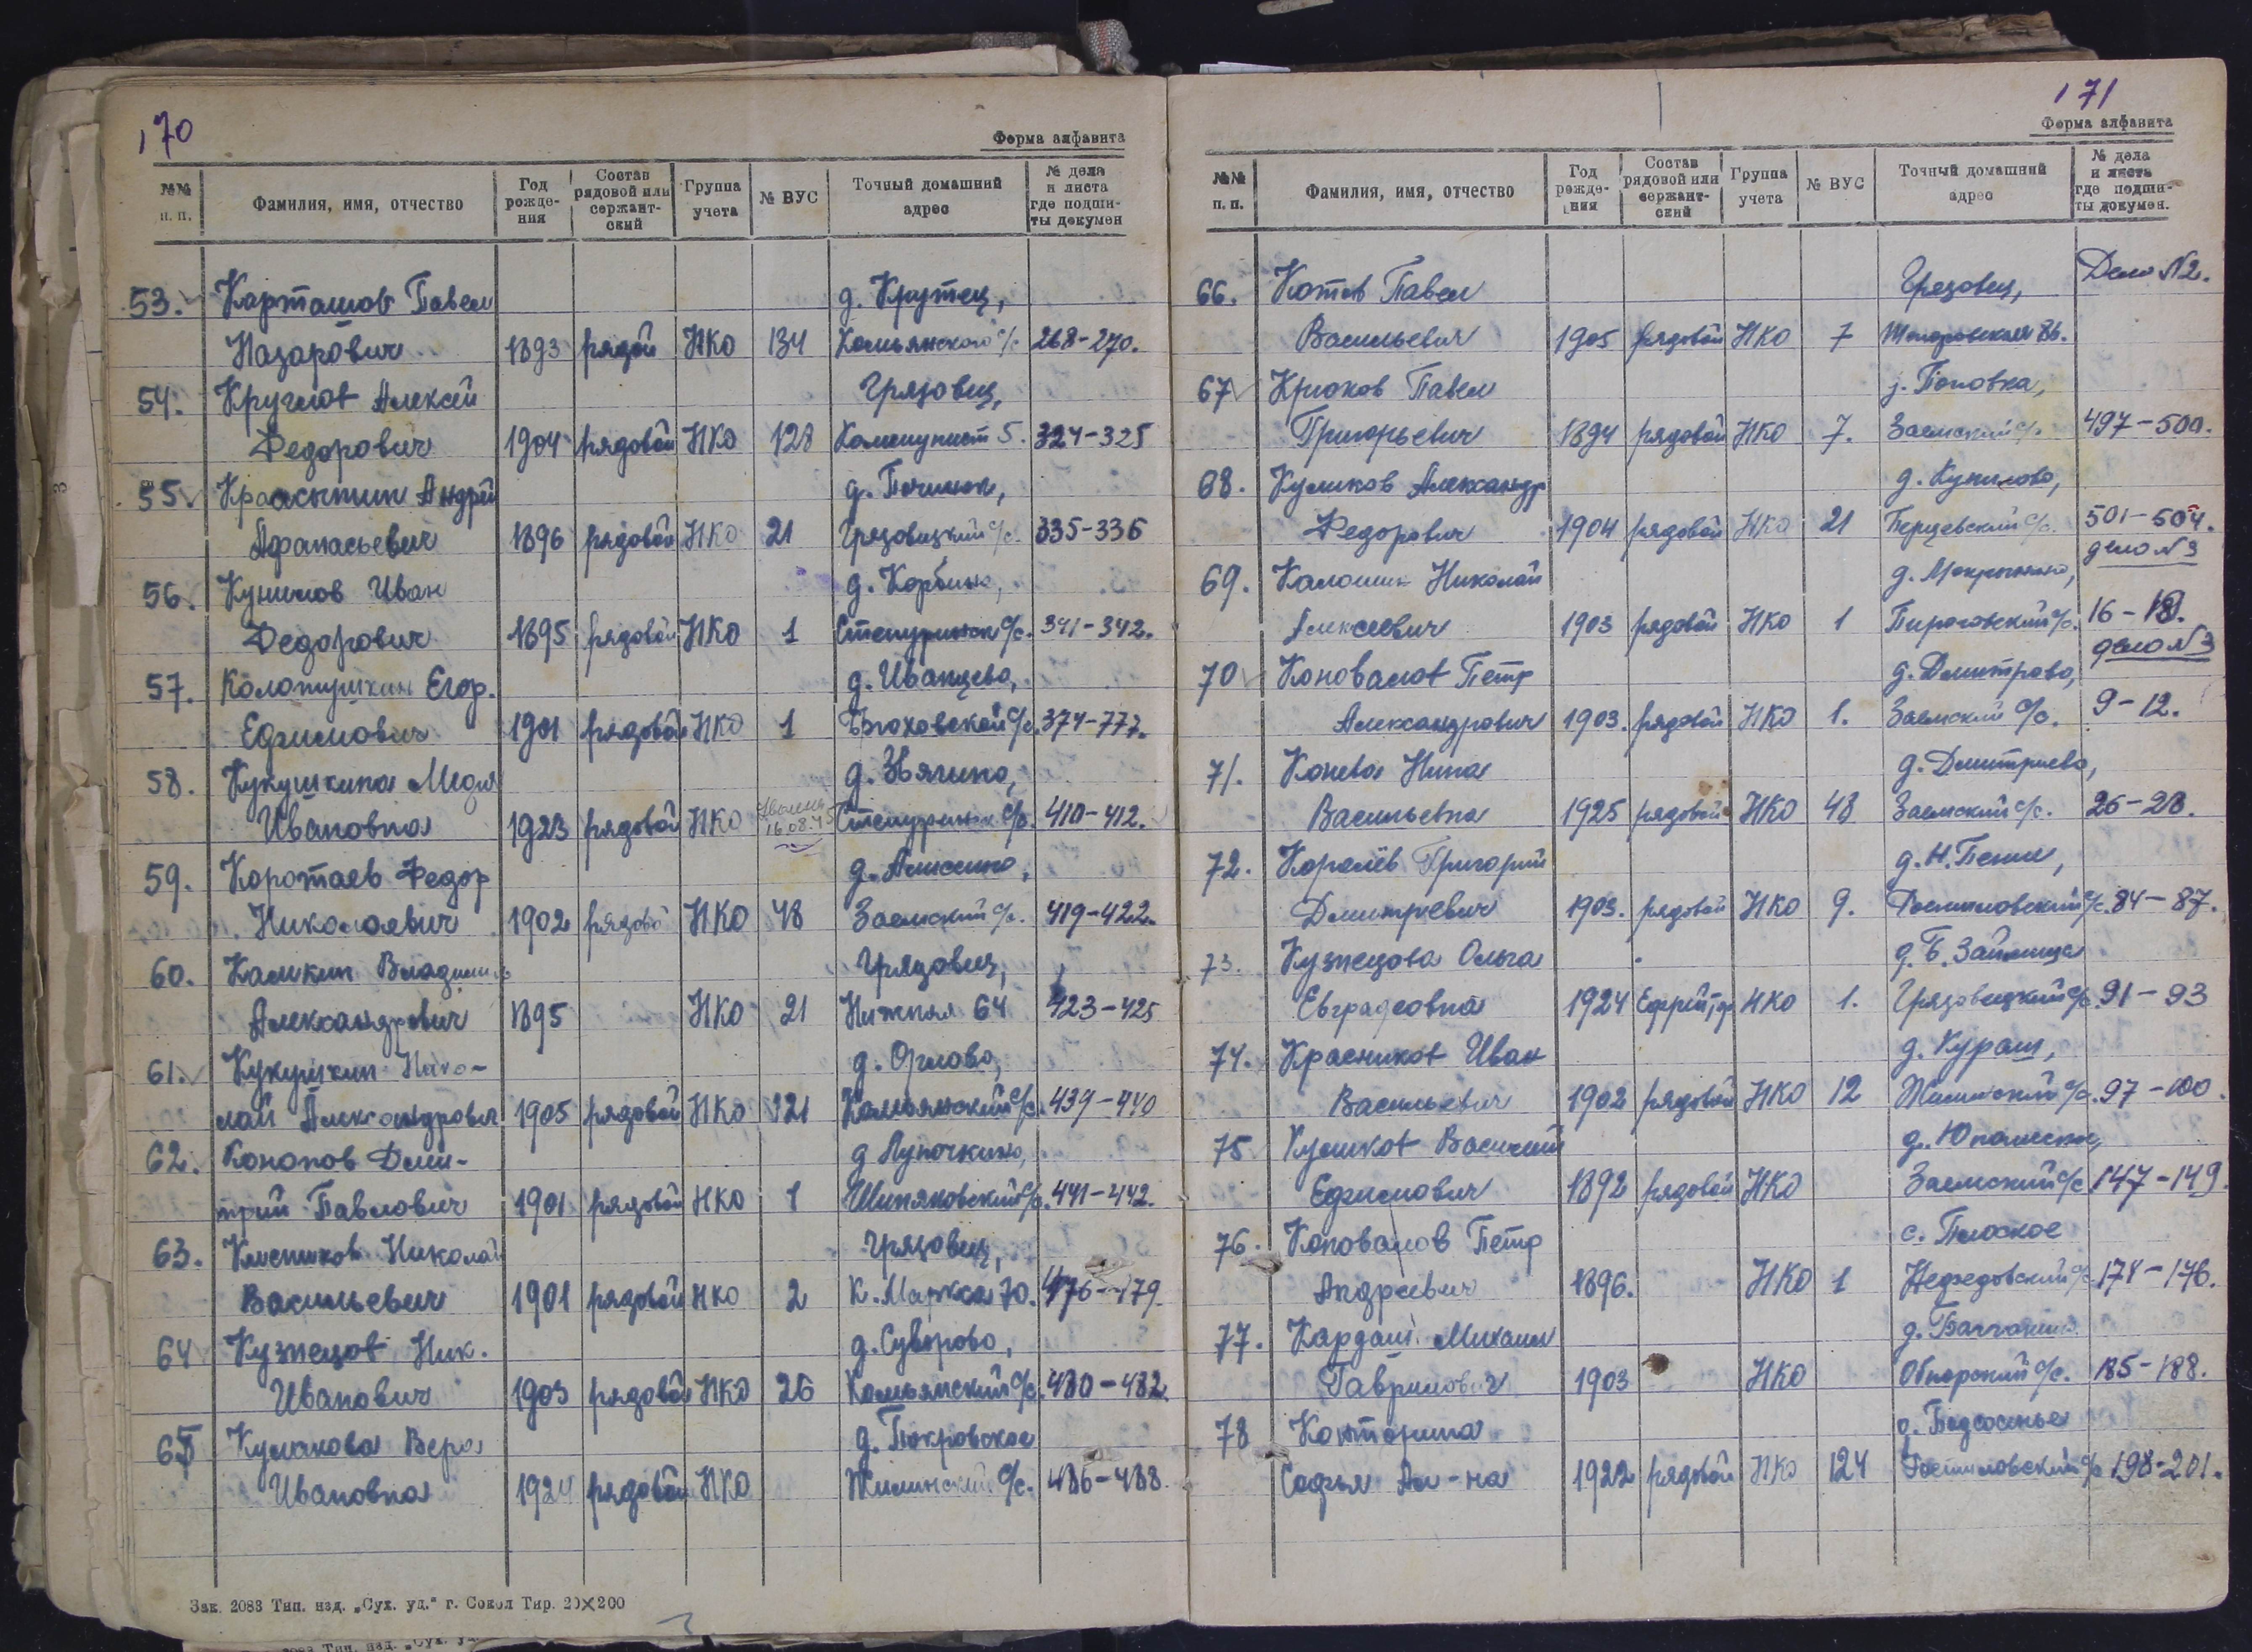 170
Форма алфавита
№№ п. п. Фамилия, имя, отчество Год рожде-ния Состав рядовой или сержант-ский Группа учета № ВУС Точный домашний адрес № дела и листа где подши-ты докумен
53. Карташов Павел д. Крутец,
Назарович 1893 рядой НКО 134 Комьянского с/с 268-270.
54. Круглов Алексей Грязовец,
Федорович 1904 рядовой НКО 128 Коммунист 5. 324-325
55. Красотин Андрей д. Починок,
Афанасьевич 1896 рядовой НКО 21 Грязовецкий с/с. 335-336
56. Куницов Иван д. Корбино,
Федорович 1895 рядовой НКО 1 Степуринск с/с. 341-342.
57. Колотушкин Егор. д. Иванцево,
Ефимович 1901 рядовой НКО 1 с/с. 374-777.
58. Кукушкина Мария д. Звягино,
Ивановна 1923 рядовой НКО 16.08.45 Степуринск с/с. 410-412.
59. Коротаев Федор д. Алексино,
Николаевич 1902 рядово НКО 48 Заемский с/с. 419-422.
60. Калкин Владимир Грязовец,
Александрович 1895 НКО 21 Нижняя 64 423-425
61. Кукушкин Нико- д. Орлово,
лай Александрович 1905 рядовой НКО 121 Комьянский с/с. 439-440
62. Кононов Дми- д Лупочкино,
трий Павлович 1901 рядовой НКО 1 Шиняковский с/с. 441-442.
63. Николай Грязовец,
Васильевич 1901 рядовой НКО 2 К. Маркса 70. 476-479.
64 Кузнецов Ник. д. Суворово,
Иванович 1903 рядовой НКО 26 Комьянский с/с. 480-482
65 Куликова Вера д. Покровское
Ивановна 1924 рядовой НКО Жилинский с/с. 486-488
Зак. 2083 Тип. изд. „Сух. уд.“ г. Сокол Тир. 20×200
171
Форма алфавита
№№ п. п. Фамилия, имя, отчество Год рожде-ния Состав рядовой или сержант-ский Группа учета № ВУС Точный домашний адрес № дела и листа где подши-ты докумен.
66. Котов Павел Грязовец, Дело №2.
Васильевич 1905 рядовой НКО 7
67 Крюков Павел д. Поповка,
Григорьевич 1894 рядовой НКО 7. Заемский с/с. 497-500.
68. Куликов Александр
Федорович 1904 рядовой НКО 21 Перцевский с/с. 501-504.
дело №3
69. Калошин Николай
Алексеевич 1903 рядовой НКО 1 Пироговский с/с. 16-18.
дело №3
70 Коновалов Петр д. Дмитрово,
Александрович 1903. рядовой НКО 1. Заемский с/с. 9-12.
71. Конева Нина д. Дмитриево,
Васильевна 1925 рядовой НКО 48 Заемский с/с. 26-28.
72. Королёв Григорий д. Н. Пенье,
Дмитриевич 1903. рядовой НКО 9. Ростиловский с/с. 84-87.
73. Кузнецова Ольга д. Б. Займища
Евграфовна 1924 Ефрейтр НКО 1. Грязовецкий с/с. 91-93
74. Красников Иван д. Кураш,
Васильевич 1902 рядовой НКО 12 Жилинский с/с. 97-100.
75 Куликов Василий
Ефимович 1892 рядовой НКО Заемский с/с 147-149.
76. Коновалов Пётр с. Плоское
Андреевич 1896. НКО 1 Недедовский с/с. 174-176.
77. Кардаш Михаил
Гаврилович 1903 НКО Обнорский с/с. 185-188.
78 Конторина д. Подсосенье
Софья Ал-на 1922 рядовой НКО 124 Ростиловский с/с 198-201.